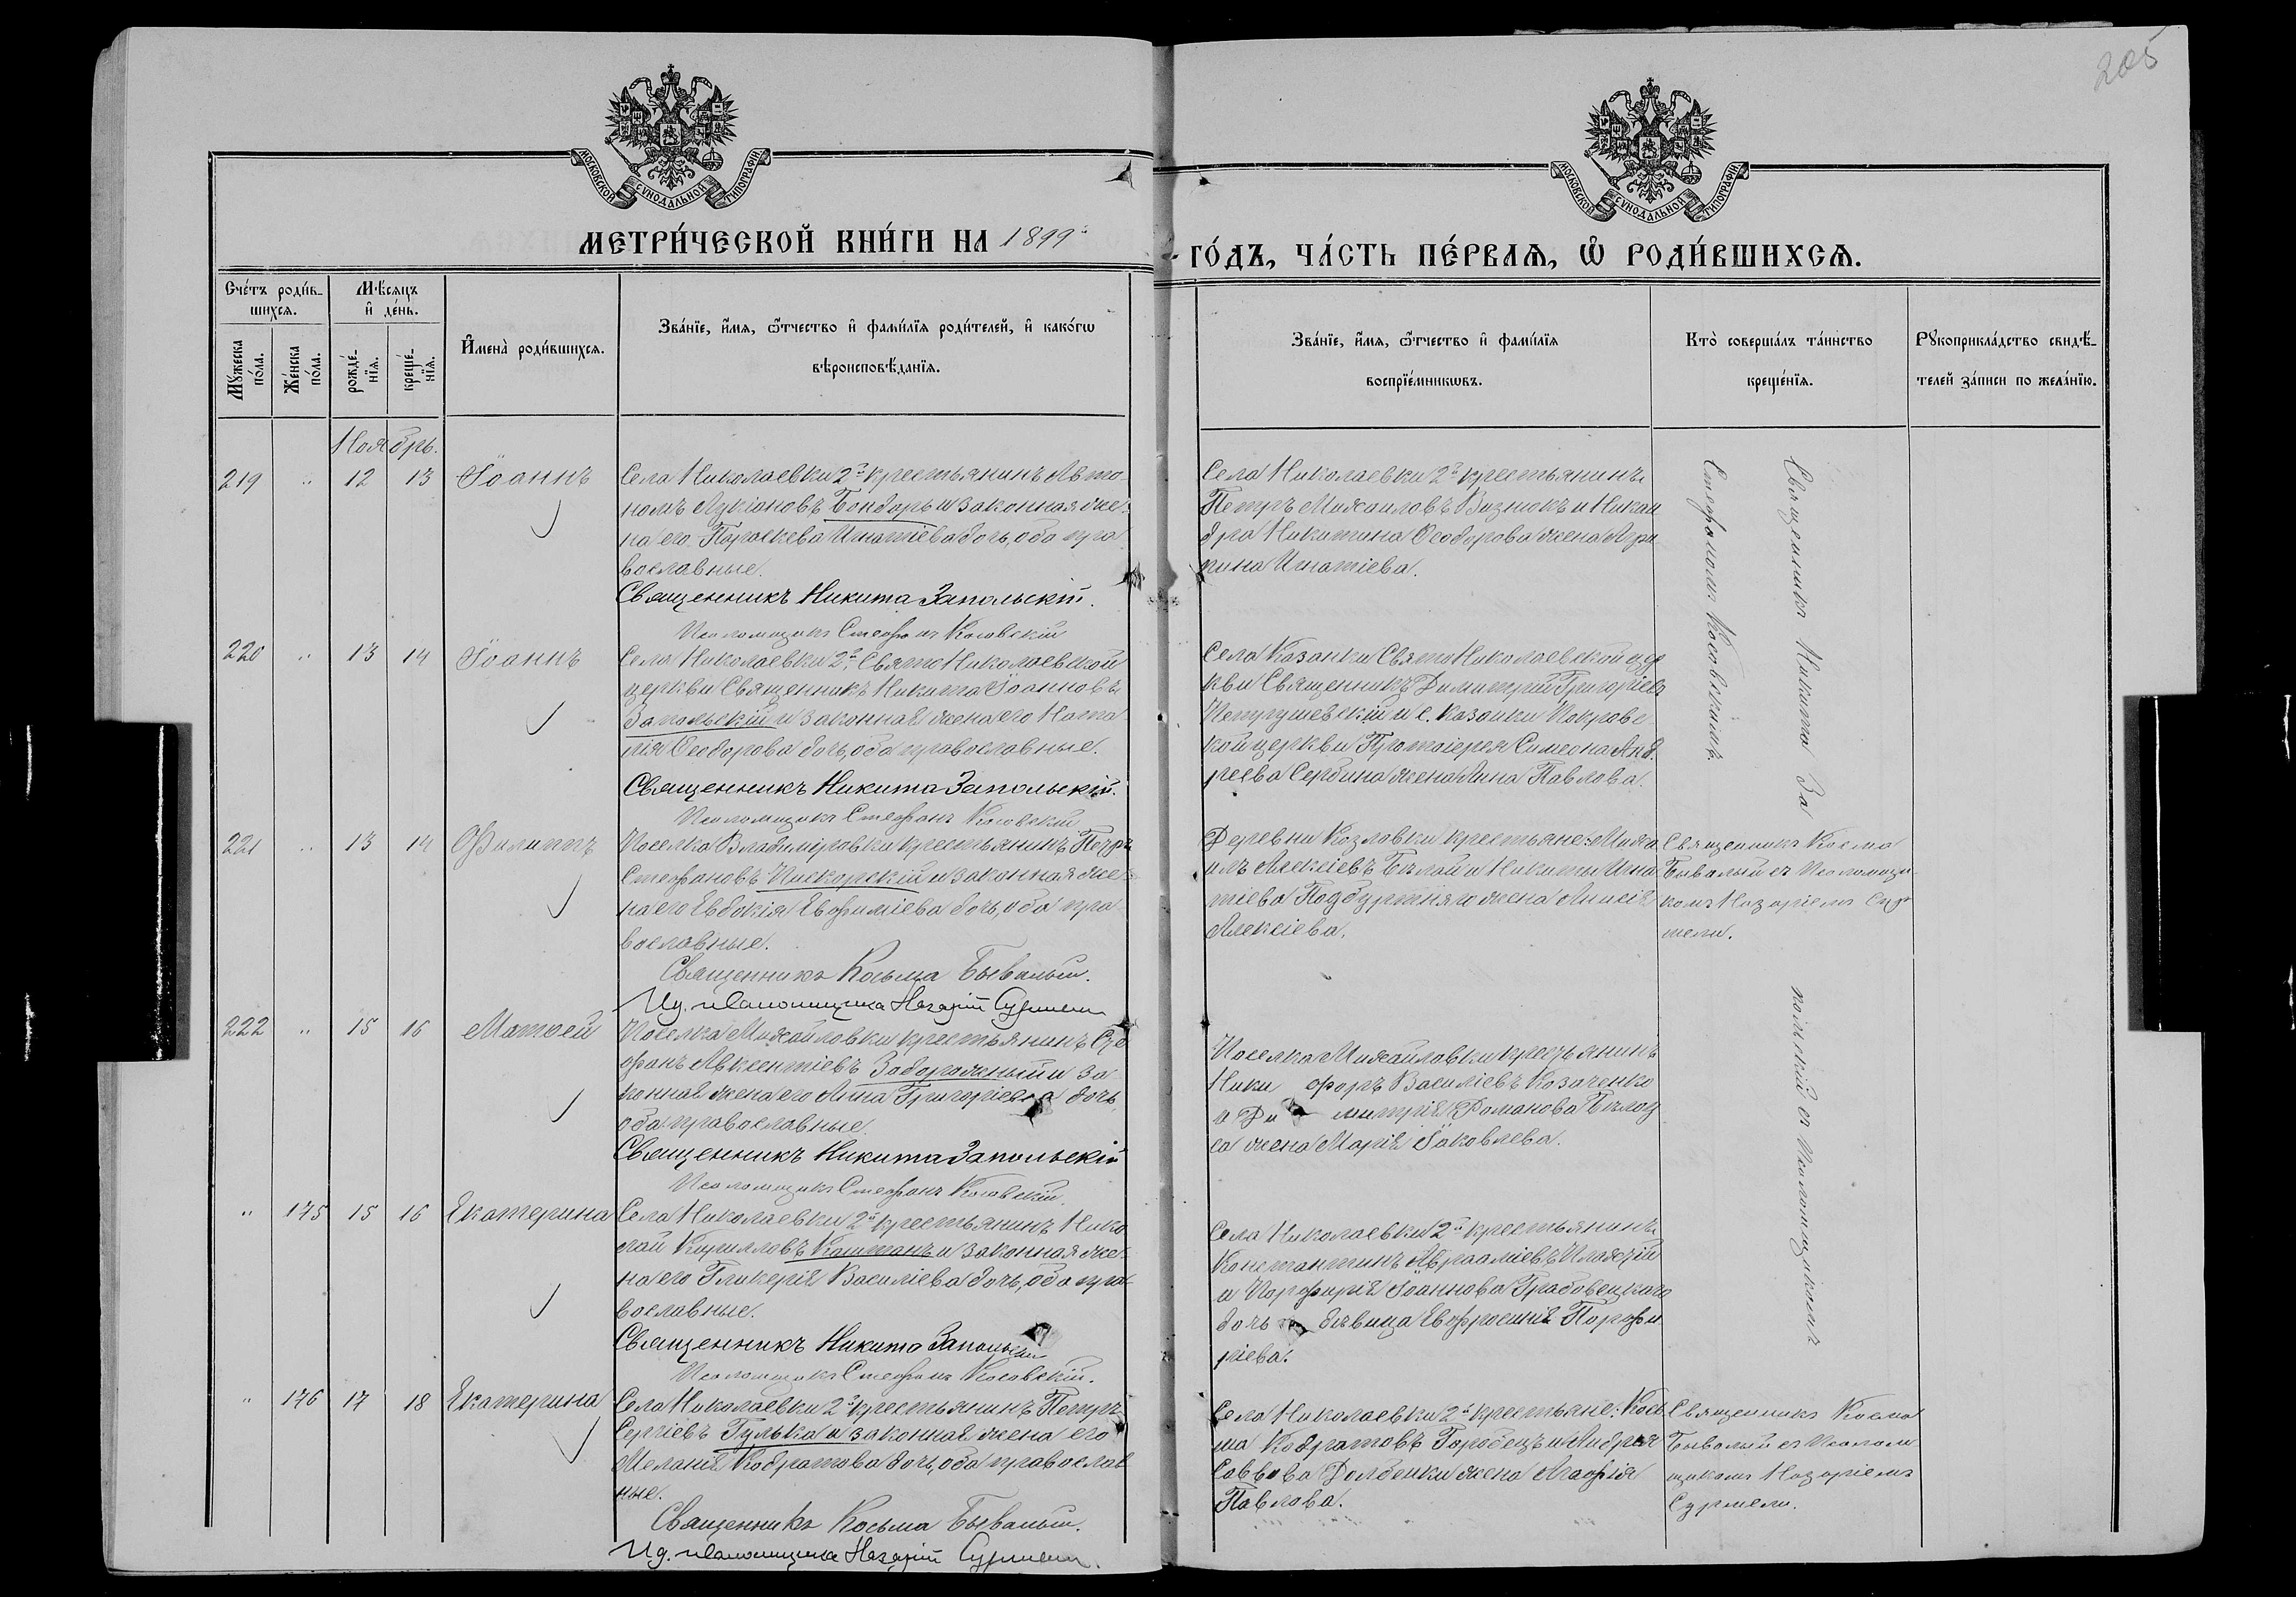 205
МОСКОВСКОЙ СУНОДАЛЬНОЙ ТИПОГРАФІИ.
МОСКОВСКОЙ СУНОДАЛЬНОЙ ТИПОГРАФІИ.
МЕТРИ́ЧЕСКОЙ КНИ́ГИ НА 1899й
ГО́ДЪ, ЧА́СТЬ ПЕ́РВАѦ, Ѡ҆ РОДИ́ВШИХСѦ.
Сче́тъ роди́в-
шихсѧ.
Мꙋ́жеска по́ла.
Же́нска по́ла.
Мѣ́сѧцъ
и҆ де́нь.
рожде́-нїѧ.
креще́-нїѧ.
И҆мена̀ роди́вшихсѧ.
Зва́нїе, и҆́мѧ, ѻ҆́тчество и҆ фами́лїѧ роди́телей, и҆ како́гѡ
вѣроисповѣ́данїѧ.
Зва́нїе, и҆́мѧ, ѻ҆́тчество и҆ фами́лїѧ
воспрїе́мникѡвъ.
Кто̀ соверша́лъ та́инство
креще́нїѧ.
Рꙋкоприкла́дство свидѣ́-
телей за́писи по жела́нїю.
Ноябрь.
219 " 12 13 Іоаннъ
Села Николаевки 2й крестьянинъ Авто-
номъ Лукіановъ Бондарь и законная же-
на его Параскева Игнатіева дочь, оба пра
вославные.
Священникъ Никита Запольскій.
Псаломщикъ Стефанъ Косовскій
Села Николаевки 2й крестьянинъ
Петръ Михаиловъ Вознюкъ и Никан
дра Никитина Ѳеодорова жена Агри
пина Игнатіева.
Священникъ Никита За
польскій съ Псаломщикомъ
Стефаномъ Косовскимъ.
220 " 13 14 Іоаннъ
Села Николаевки 2й Свято Николаевской
церкви Священникъ Никита Іоанновъ
Запольскій и законная жена его Ната
лія Ѳеодорова дочь, оба православные.
Священникъ Никита Запольскій.
Псаломщикъ Стефанъ Косовскій
Села Казанки Свято Николаевской цер
кви Священникъ Димитрій Григоріевъ
и с. Казанки Покровс
кой церкви Протоіерея Симеона Анд
реева Сербина жена Анна Павлова.
221 " 13 14 Филиппъ
Поселка Владиміровки крестьянинъ Петръ
Стефановъ Пискорскій и законная же-
на его Евдокія Евфиміева дочь, оба пра
вославные.
Священникъ Косьма Бывалый.
Ид. псаломщика Назарій Сурмели
Деревни Козловки крестьяне: Миха
илъ Алексіевъ Бѣлый и Никиты Игна
тіева жена Анисія
Алексіева.
Священникъ Косма
Бывалый съ Псаломщи
комъ Назаріемъ Сур
мели.
222 " 15 16 Матѳей
Поселка Михайловки крестьянинъ Сте
фанъ Авксентіевъ Забороженый и за
конная жена его Анна Григоріева дочь
оба православные.
Священникъ Никита Запольскій
Псаломщикъ Стефанъ Косовскій.
Поселка Михайловки крестьянинъ
Ники форъ Василіевъ Козаченко
и Ди митрія Романова Бѣлоу
са жена Марія Іаковлева.
" 175 15 16 Екатерина
Села Николаевки 2й крестьянинъ Нико
лай Кирилловъ Каштанъ и законная же-
на его Гликерія Василіева дочь, оба пра-
вославные.
Священникъ Никита Запольскій
Псаломщикъ Стефанъ Косовскій.
Села Николаевки 2й крестьянинъ
Константинъ Авраамiевъ
и Порфирія Іоаннова Грабовецкаго
дочь дѣвица Евфросинія Порфи
ріева.
" 176 17 18 Екатерина
Села Николаевки 2й крестьянинъ Петръ
Сергіевъ Гулька и законная жена его
Меланія Кодратова дочь, оба православ
ные.
Священникъ Косьма Бывалый.
Ид. псаломщика Назарій Сурмели.
Села Николаевки 2й крестьяне: Кось
ма Кодратовъ Городецъ и Андрея
Саввова Долбенки жена Агафія
Павлова.
Священникъ Косма
Бывалый съ Псалом
щикомъ Назаріемъ
Сурмели.